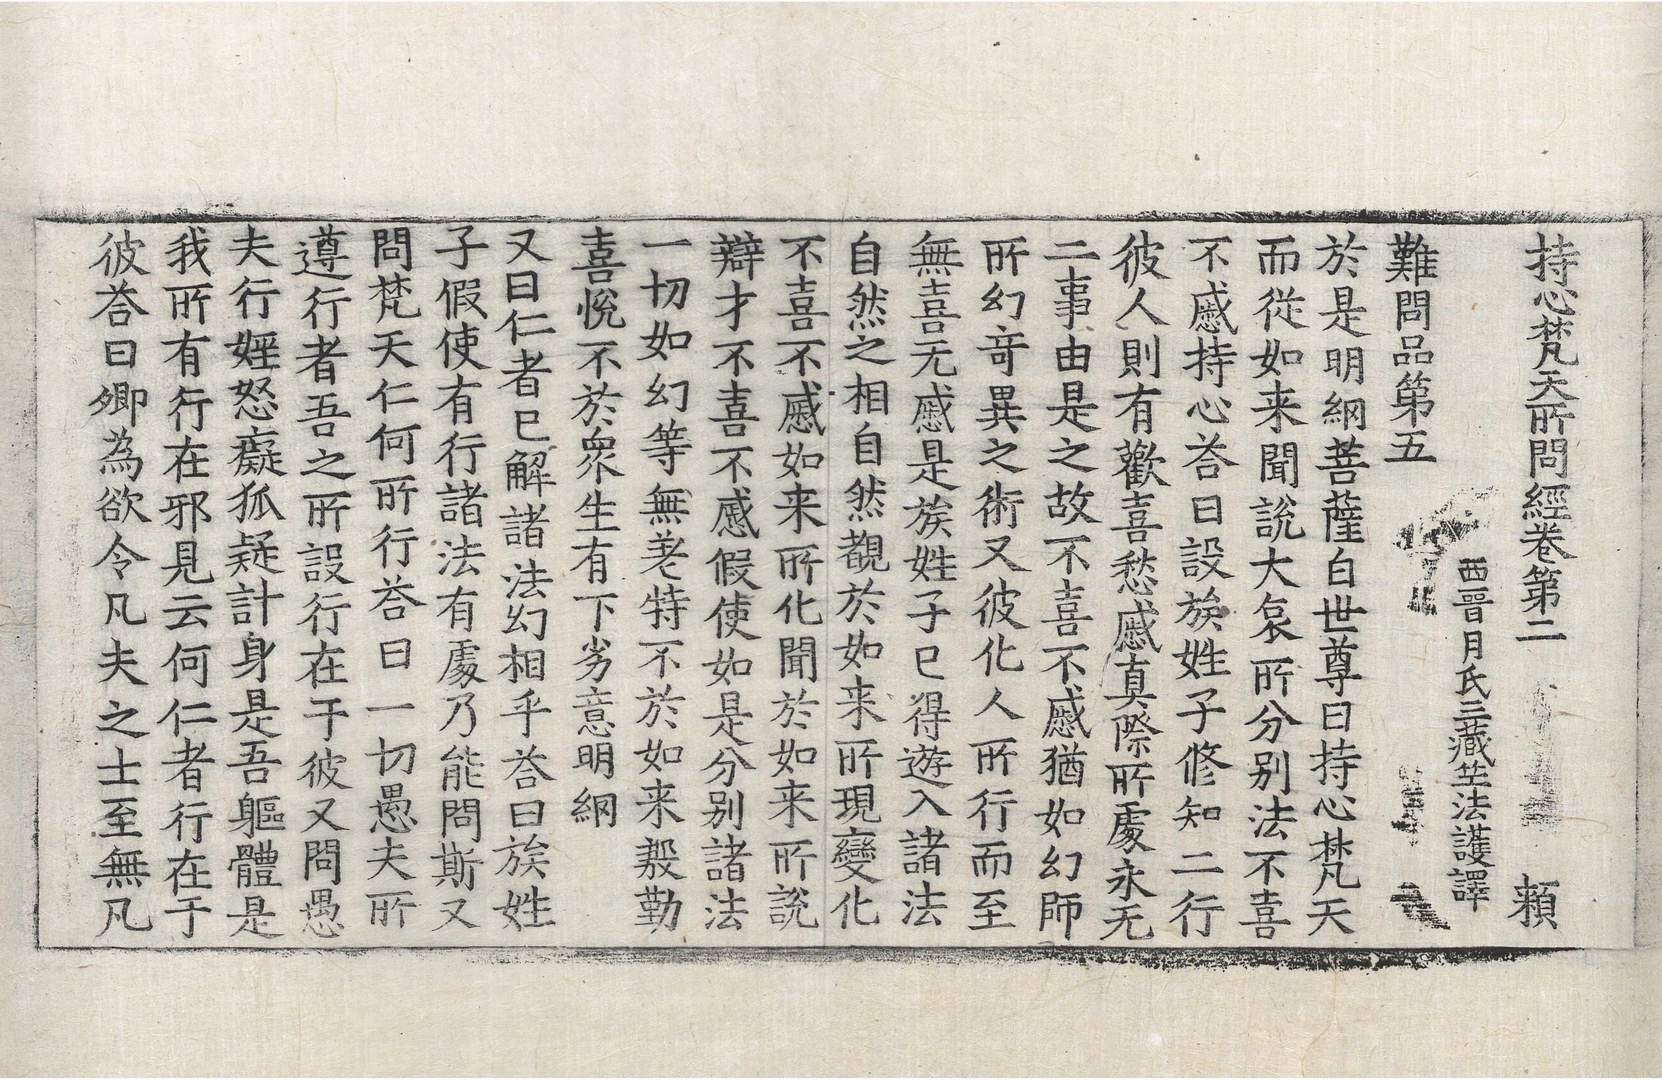 持心梵天所問經卷第二　賴
西晉月氏三藏竺法護譯
難問品第五
於是明網菩薩白世尊曰持心梵天
而從如来聞說大哀所分别法不喜
不慼持心荅曰設族姓子修知二行
彼人則有歡喜愁慼真際所處永无
二事由是之故不喜不慼猶如幻師
所幻竒異之術又彼化人所行而至
無喜无慼是族姓子已得遊入諸法
自然之相自然覩於如来所現變化
不喜不慼如来所化聞於如来所說
辯才不喜不慼假使如是分别諸法
一切如幻等無差特不於如来慇勤
喜悅不於衆生有下劣意明網
又曰仁者已解諸法幻相乎荅曰族姓
子假使有行諸法有處乃能問斯又
問梵天仁何所行荅曰一切愚夫所
遵行者吾之所設行在于彼又問愚
夫行婬怒癡狐疑計身是吾軀體是
我所有行在邪見云何仁者行在于
彼荅曰卿為欲令凡夫之士至無凡